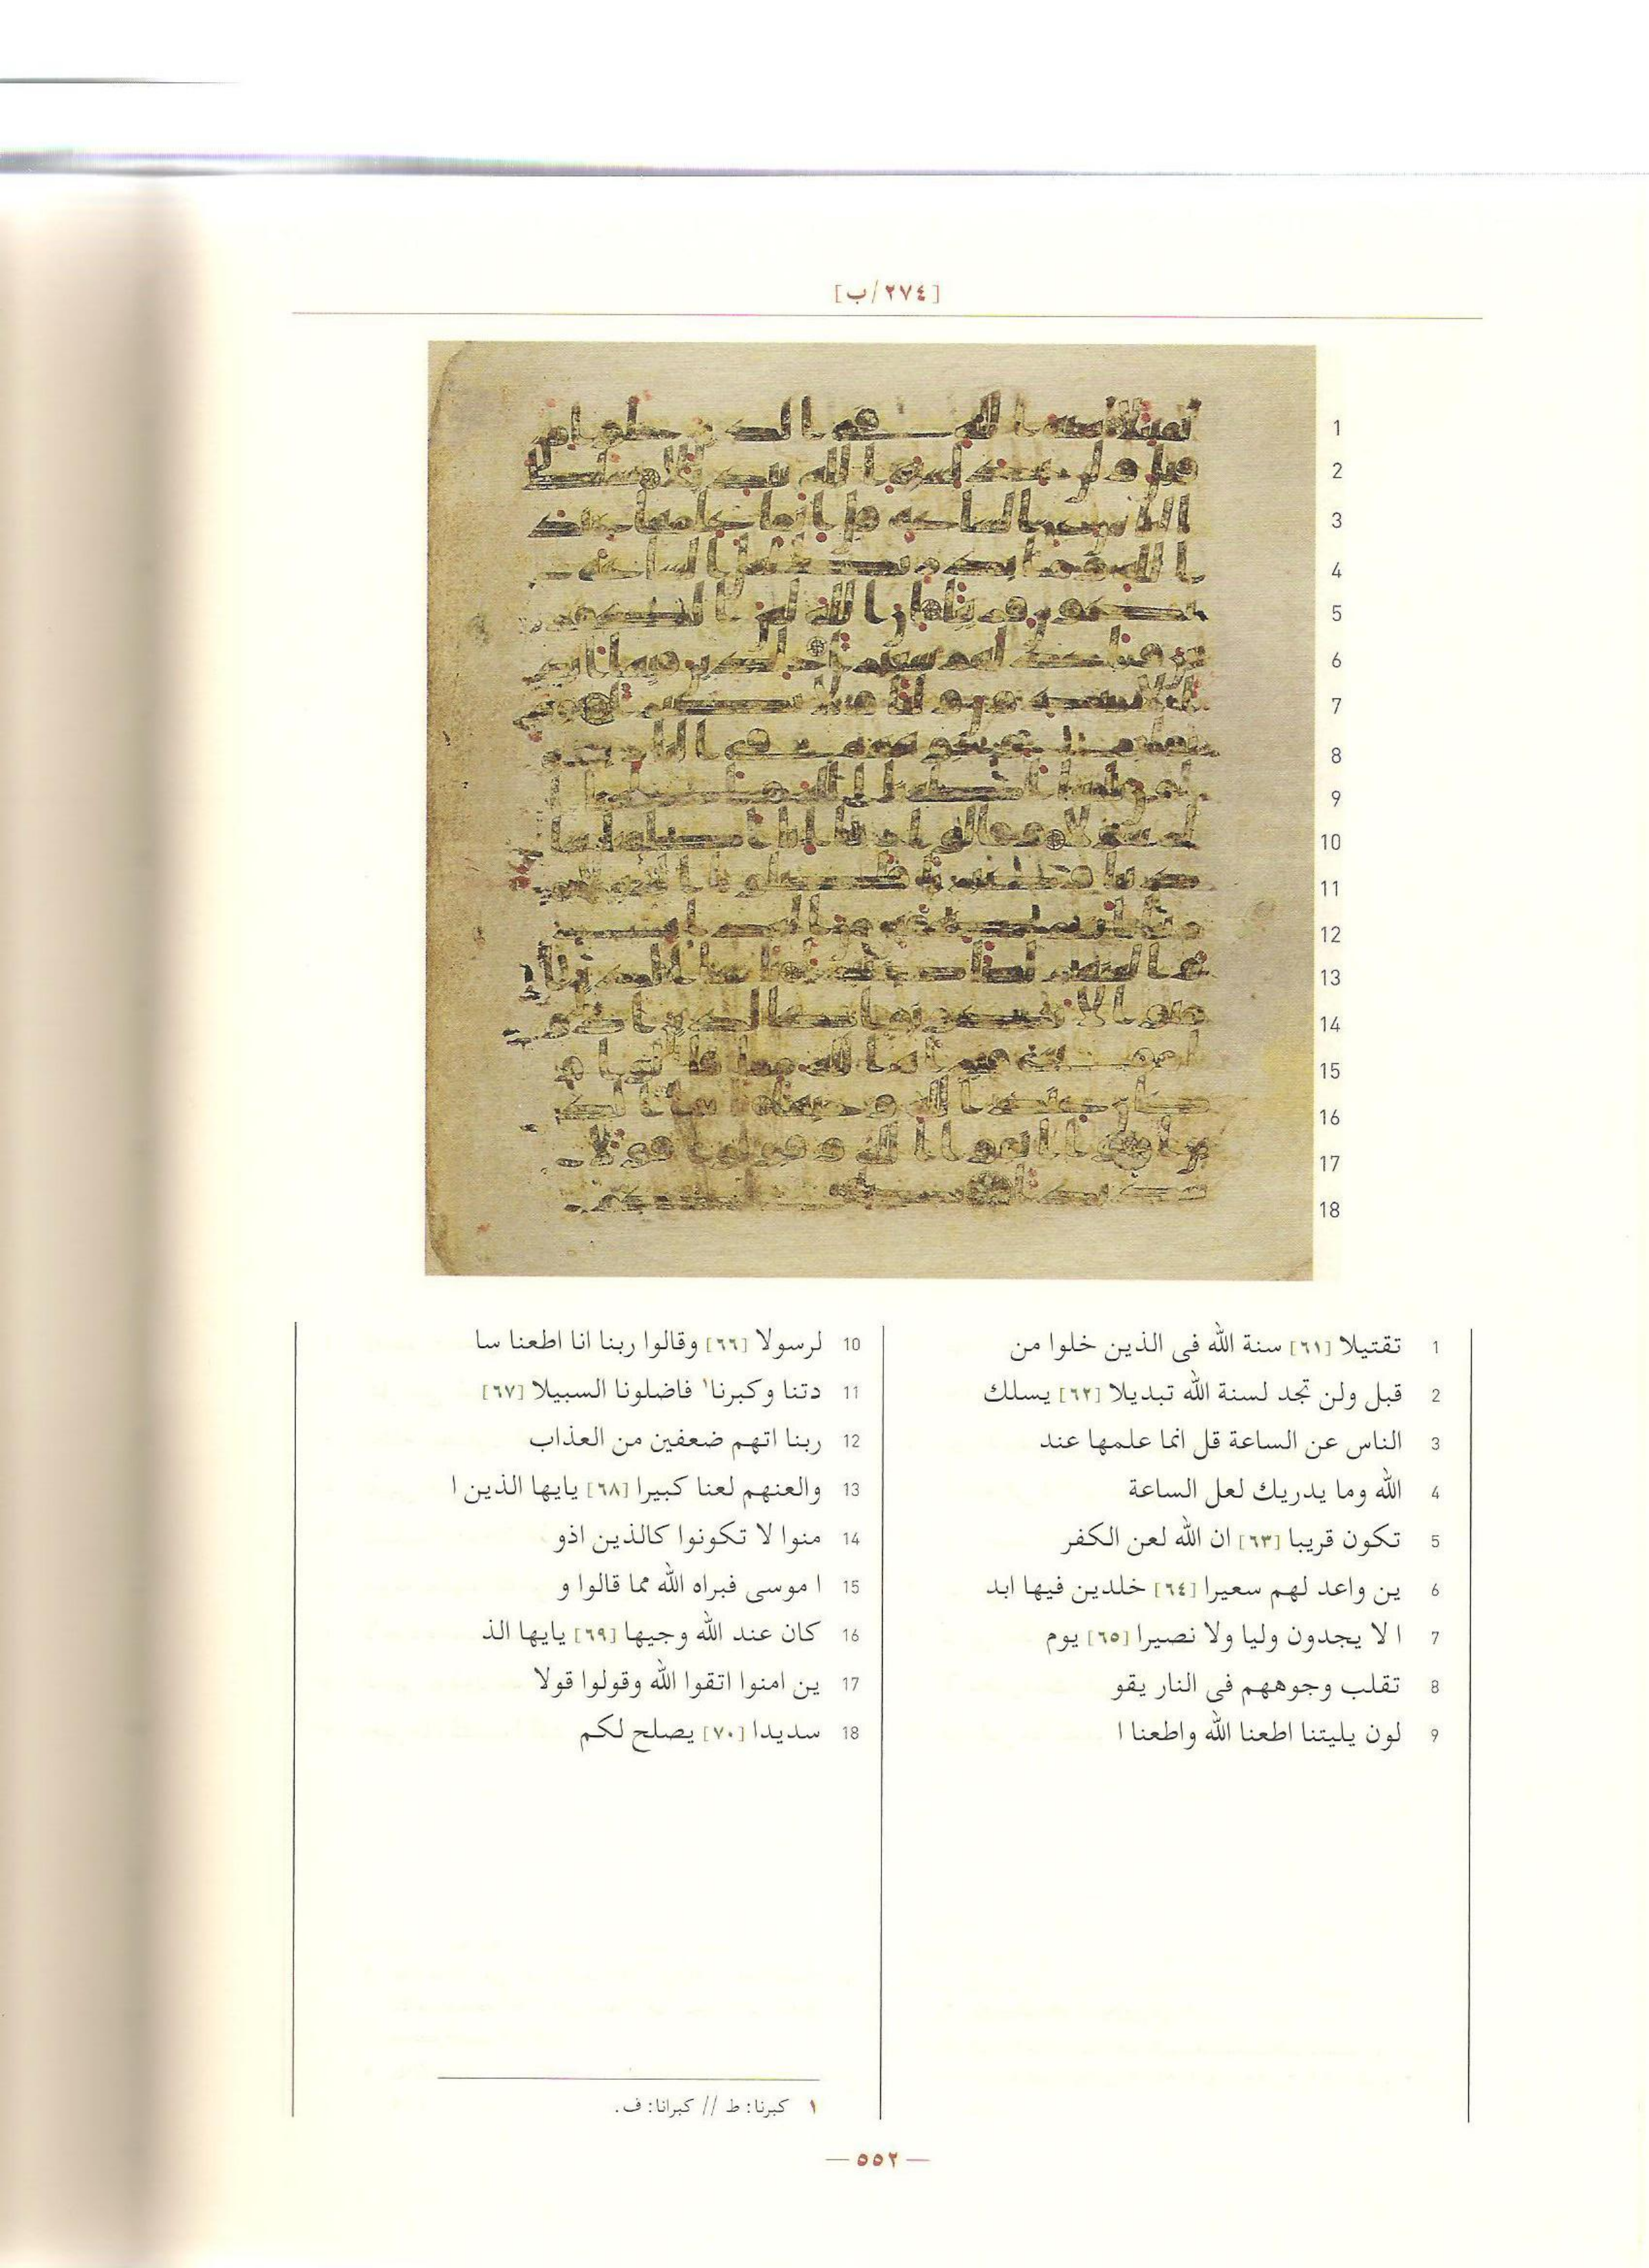 [٢٧٤/ب]
1
2
3
4
5
6
7
8
9
10
11
12
13
14
15
16
17
18
1 تقتيلا [٦١] سنة الله فى الذين خلوا من
2 قبل ولن تجد لسنة الله تبديلا [٦٢] يسلك
3 الناس عن الساعة قل انما علمها عند
4 الله وما يدريك لعل الساعة
5 تكون قريبا [٦٣] ان الله لعن الكفر
6 ين واعد لهم سعيرا [٦٤] خلدين فيها ابد
7 ا لا يجدون وليا ولا نصيرا [٦٥] يوم
8 تقلب وجوههم فى النار يقو
9 لون يليتنا اطعنا الله واطعنا ا
10 لرسولا [٦٦] وقالوا ربنا انا اطعنا سا
11 دتنا وكبرنا١ فاضلونا السبيلا [٦٧]
12 ربنا اتهم ضعفين من العذاب
13 والعنهم لعنا كبيرا [٦٨] يايها الذين ا
14 منوا لا تكونوا كالذين اذو
15 ا موسى فبراه الله مما قالوا و
16 كان عند الله وجيها [٦٩] يايها الذ
17 ين امنوا اتقوا الله وقولوا قولا
18 سديدا [٧٠] يصلح لكم
١ كبرنا: ط // كبرانا: ف.
— ٥٥٢ —